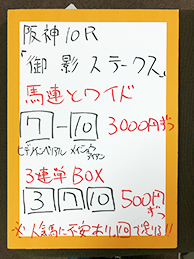 阪神10R
「御影ステークス」
馬連とワイド
7-10 3000円ずつ
ヒデノインペリアル メイショウ
3連単BOX
3 7 10 500円ずつ
※人気馬に不安あり!